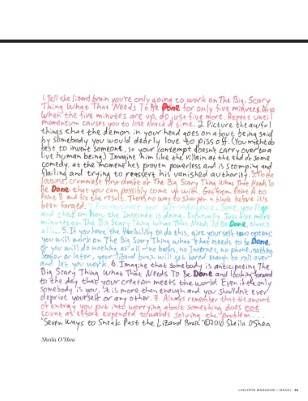 1. Tell the lizard brain you're only going to work on The Big Scary
Thing What That Needs To Be Done for only five minutes.
When the five minutes are up, do just five more. Repeat until
momentum causes you to lose track of time. 2. Picture the awful
things that the demon in your head goes on about being said
by somebody you would dearly love to piss off. (You might do
best to invent someone, so your contempt doesn't carry over to a
live human being.) Imagine him like the villain at the end of some
comedy, at the moment he's proven powerless and is stomping and
flailing and trying to reassert his vanished authority. 3. Do
the crummiest first draft of The Big Scary Thing What That Needs To
Be Done that you can possibly come up with. Go from Point A to
Point B and fix the rest. There's no way to sharpen a blade before it's
been forged. 4.
and check on how the Internet is doing.
minutes on The Big Scary Thing What That Needs To Be Done,
all. 5. If you have the flexibility to do this, give yourself two options:
you will work on The Big Scary Thing What That Needs To Be Done,
or you will do nothing at all — no book, no Internet, no phone, nothing.
Sooner or later, your lizard brain will get bored enough to roll over
and let you work. 6. Imagine that somebody is anticipating The
Big Scary Thing What That Needs To Be Done and looking forward
to the day that your creation meets the world. Even if the only
somebody is you, it is more than enough and you shouldn't ever
deprive yourself or any other. 7. Always remember that the amount
of energy you put into worrying about something does not
count as effort expended towards solving the problem.
"Seven Ways to Sneak Past the Lizard Brain" ©2010 Sheila O'Shea
Sheila O'Shea